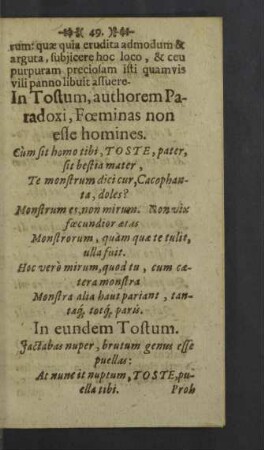 49.
rum: quæ quia erudita admodum &
arguta, subjicere hoc loco, & ceu
purpuram preciosam isti quamvis
vili panno libuit assuere.
In Tostum, authorem Pa-
radoxi, Fœminas non
esse homines.
Cùm sit homo tibi, TOSTE, pater,
sit bestia mater,
Te monstrum dici cur, Cacophan-
ta, doles?
Monstrum es, non mirum. Non vix
fœcundior ætas
Monstrorum, quàm quæ te tulit,
ulla fuit.
Hoc verò mirum, quod tu, cum cæ-
tera monstra
Monstra alia haut pariant, tan-
taq́, totq́, paris.
In eundem Tostum.
Jactabas nuper, brutum genus esse
puellas:
At nunc it nuptum, TOSTE, pu-
ella tibi.
Proh